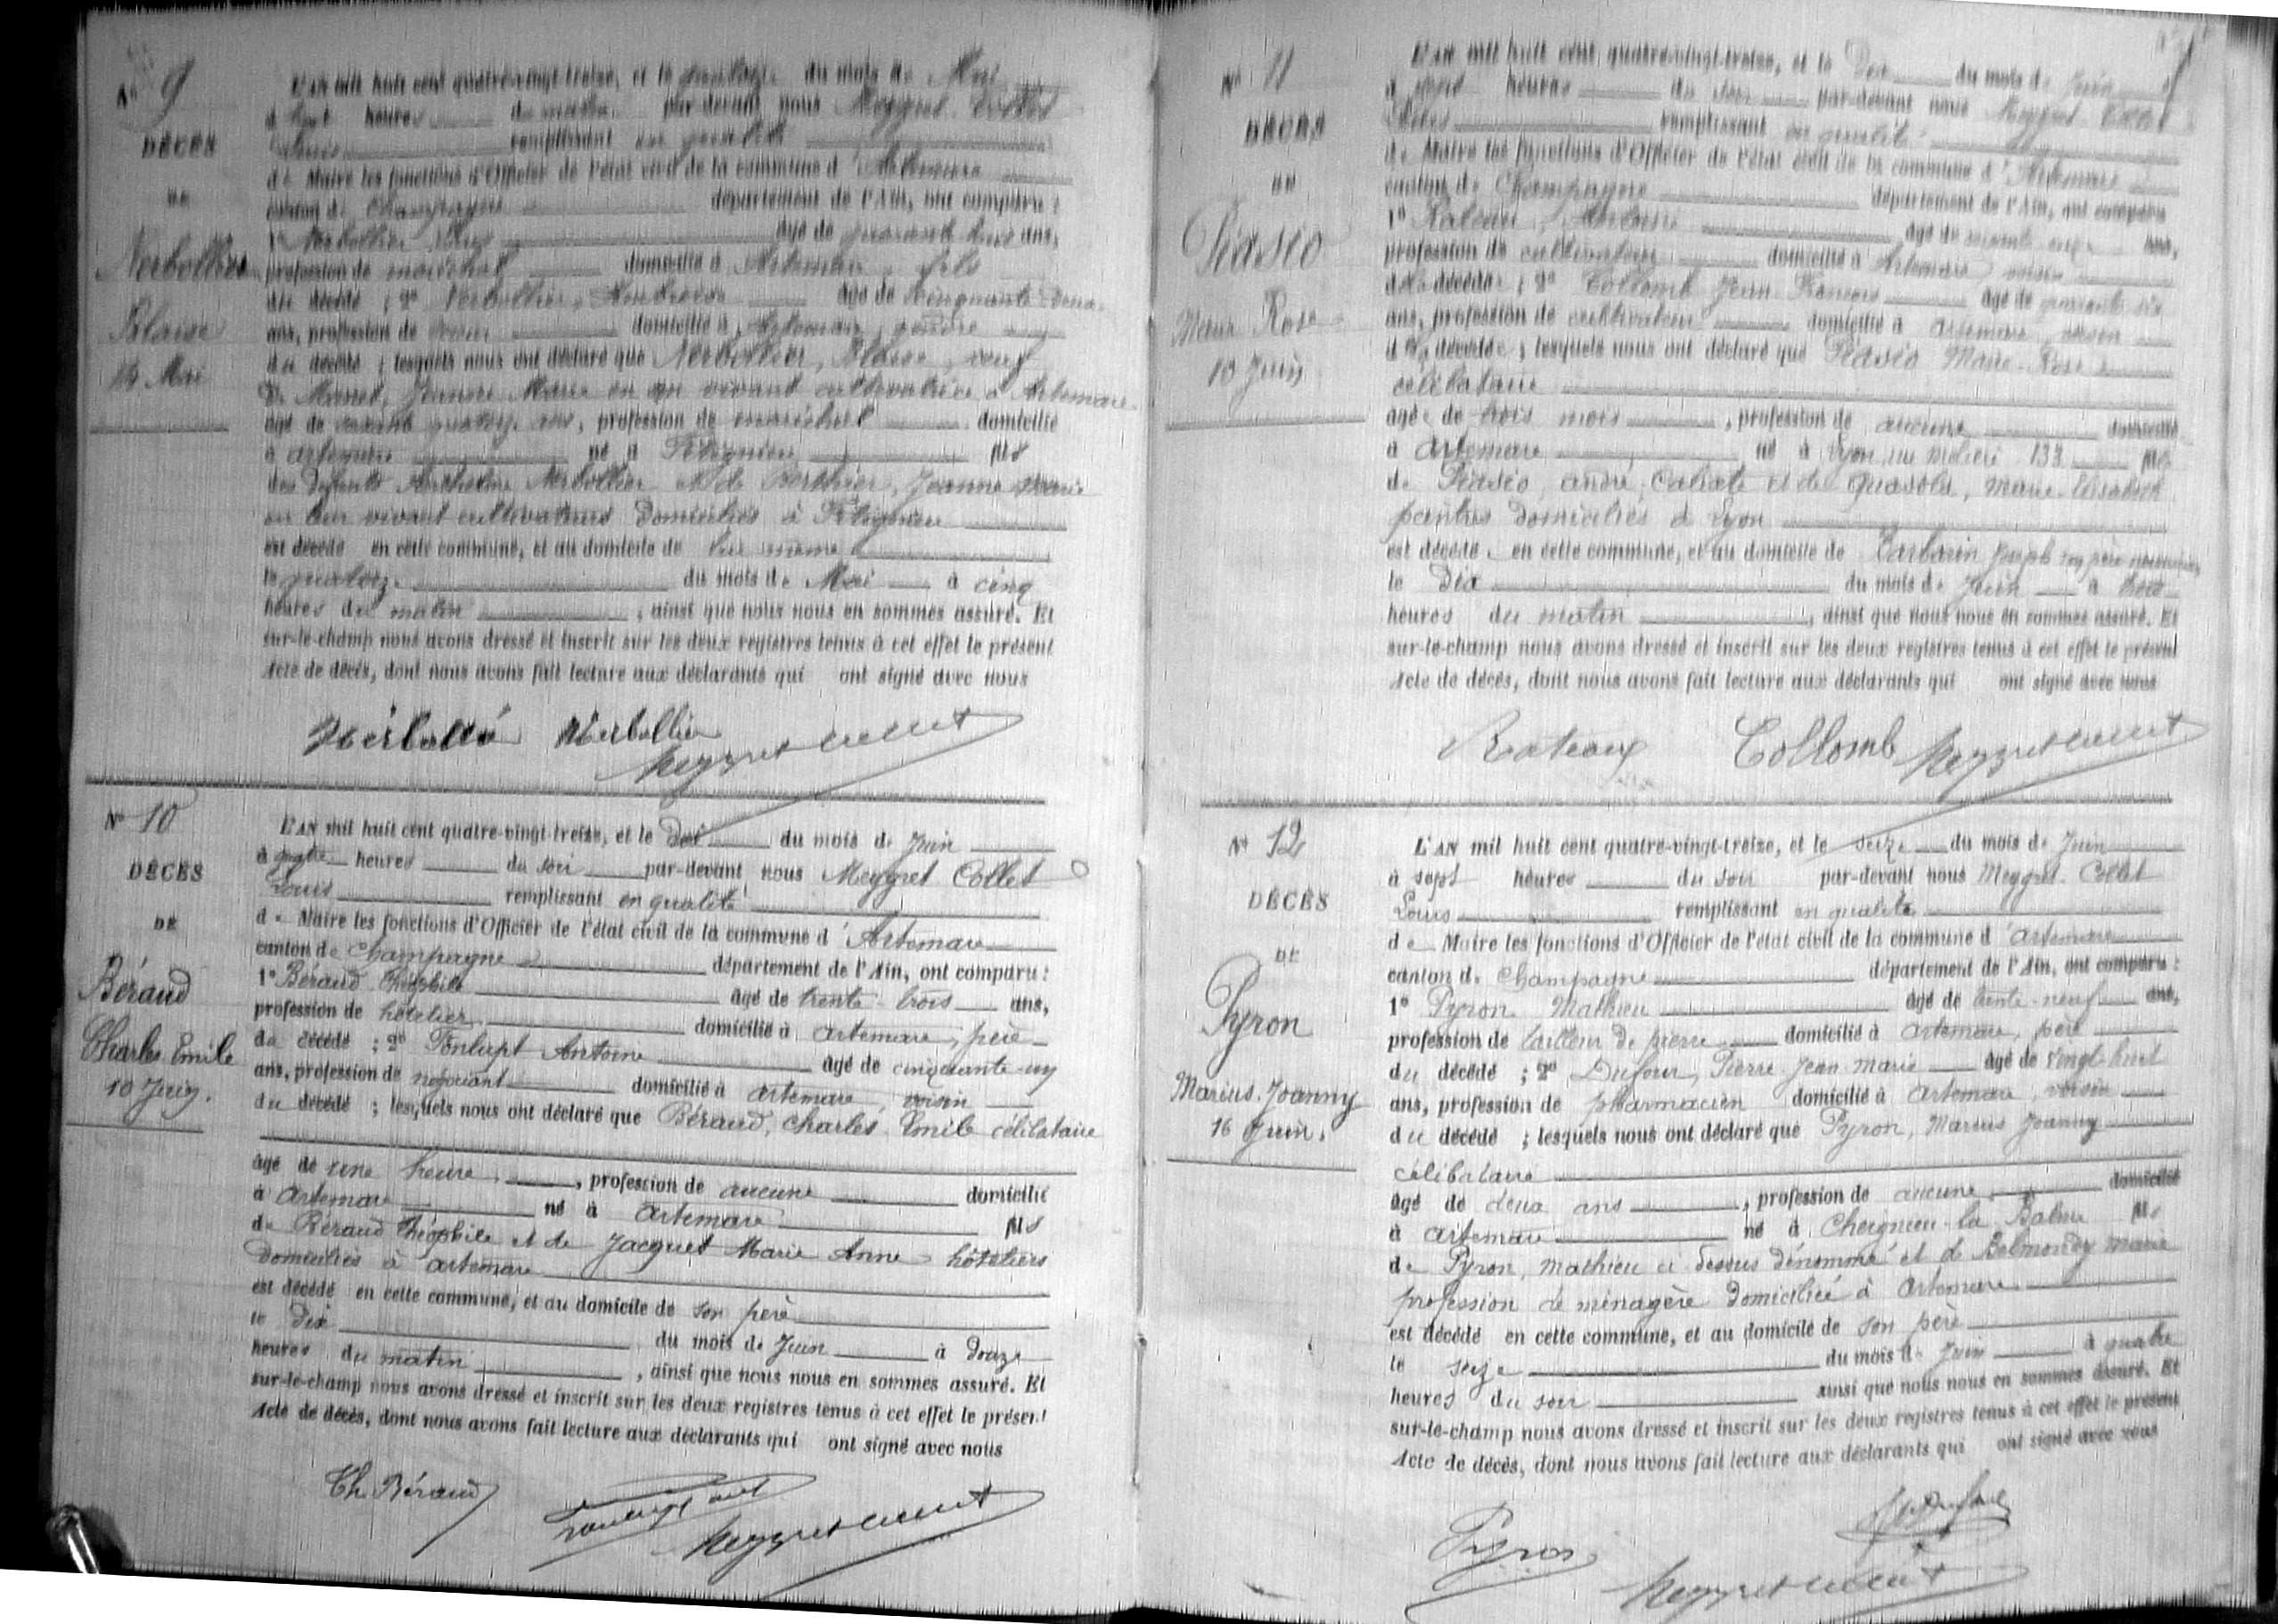 N° 9
DÉCÈS
DE
Nerbollier
Blaise
14 Mai
L'AN mil huit cent quatre-vingt-treize, et le quatorze du mois de Mai
à heures du matin par-devant nous Meygret Collet
Louis remplissant en qualité
de Maire les fonctions d'Officier de l'état civil de la commune d'Artemare
canton de Champagne département de l'Ain, ont comparu :
1° Nerbollier âgé de quarante ans,
profession de maréchal domicilié à Artemare, fils
du décédé ; 2° Nerbollier, âgé de cinquante deux
ans, profession de domicilié à Artemare, gendre
du décédé ; lesquels nous ont déclaré que Nerbollier, Blaise, veuf
de Monet, Jeanne Marie en son vivant cultivatrice à Artemare
âgé de quatorze ans, profession de maréchal domicilié
à Artemare né à Talissieu fils
des défunts Anthelme Nerbollier et de Berthier, Jeanne Marie
en leur vivant cultivateurs domiciliés à
est décédé en cette commune, et au domicile de lui même
le quatorze du mois de Mai à cinq
heures du matin, ainsi que nous nous en sommes assuré. Et
sur-le-champ nous avons dressé et inscrit sur les deux registres tenus à cet effet le présent
Acte de décès, dont nous avons fait lecture aux déclarants qui ont signé avec nous
Nerbollier
Meygret Collet
N° 10
DÉCÈS
DE
Béraud
Charles Emile
10 Juin.
L'AN mil huit cent quatre-vingt-treize, et le Dix du mois de Juin
à quatre heures du soir par-devant nous Meygret Collet
Louis remplissant en qualité
de Maire les fonctions d'Officier de l'état civil de la commune d'Artemare
canton de Champagne département de l'Ain, ont comparu :
1° Béraud Théophile âgé de trente-trois ans,
profession de hôtelier domicilié à Artemare, père
du décédé ; 2° Fonlupt Antoine âgé de cinquante-un
ans, profession de négociant domicilié à Artemare, voisin
du décédé ; lesquels nous ont déclaré que Béraud, Charles Emile célibataire
âgé de une heure, profession de aucune domicilié
à Artemare né à Artemare fils
de Béraud Théophile et de Jacquet Marie Anne hôteliers
domiciliés à Artemare
est décédé en cette commune, et au domicile de son père
le Dix du mois de Juin à Douze
heures du matin, ainsi que nous nous en sommes assuré. Et
sur-le-champ nous avons dressé et inscrit sur les deux registres tenus à cet effet le présent
Acte de décès, dont nous avons fait lecture aux déclarants qui ont signé avec nous
Th. Béraud
Meygret Collet
N° 11
DÉCÈS
DE
Piasio
Marie Rose
10 Juin
L'AN mil huit cent quatre-vingt-treize, et le Dix du mois de Juin
à sept heures du soir par-devant nous Meygret Collet
Louis remplissant en qualité
de Maire les fonctions d'Officier de l'état civil de la commune d'Artemare
canton de Champagne département de l'Ain, ont comparu
1° Rateau, Antoine âgé de ans,
profession de cultivateur domicilié à Artemare voisin
de la décédée ; 2° Collomb Jean François âgé de quarante six
ans, profession de cultivateur domicilié à Artemare, voisin
de la décédée ; lesquels nous ont déclaré que Piasio Marie-Rose
célibataire
âgée de trois mois, profession de aucune domiciliée
à Artemare né à Lyon, rue Molière 133 fille
de Piasio, André, Calixte et de Quasola, Marie-Elisabeth
peintres domiciliés à Lyon
est décédée en cette commune, et au domicile de Tarbarin Joseph son père nourricier
le Dix du mois de Juin à trois
heures du matin, ainsi que nous nous en sommes assuré. Et
sur-le-champ nous avons dressé et inscrit sur les deux registres tenus à cet effet le présent
Acte de décès, dont nous avons fait lecture aux déclarants qui ont signé avec nous
Rateau Collomb Meygret Collet
N° 12
DÉCÈS
DE
Pyron
Marius Joanny
16 Juin.
L'AN mil huit cent quatre-vingt-treize, et le seize du mois de Juin
à sept heures du soir par-devant nous Meygret Collet
Louis remplissant en qualité
de Maire les fonctions d'Officier de l'état civil de la commune d'Artemare
canton de Champagne département de l'Ain, ont comparu :
1° Pyron Mathieu âgé de trente-neuf ans,
profession de tailleur de pierre domicilié à Artemare, père
du décédé ; 2° Dufour, Pierre Jean Marie âgé de vingt-huit
ans, profession de pharmacien domicilié à Artemare, voisin
du décédé ; lesquels nous ont déclaré que Pyron, Marius Joanny
célibataire
âgé de deux ans, profession de aucune domicilié
à Artemare né à Cheignieu-la Balme fils
de Pyron, Mathieu ci dessus dénommé et de Belmondy Marie
profession de ménagère domiciliée à Artemare
est décédé en cette commune, et au domicile de son père
le seize du mois de Juin à quatre
heures du soir ainsi que nous nous en sommes assuré. Et
sur-le-champ nous avons dressé et inscrit sur les deux registres tenus à cet effet le présent
Acte de décès, dont nous avons fait lecture aux déclarants qui ont signé avec nous
Pyron Dufour
Meygret Collet